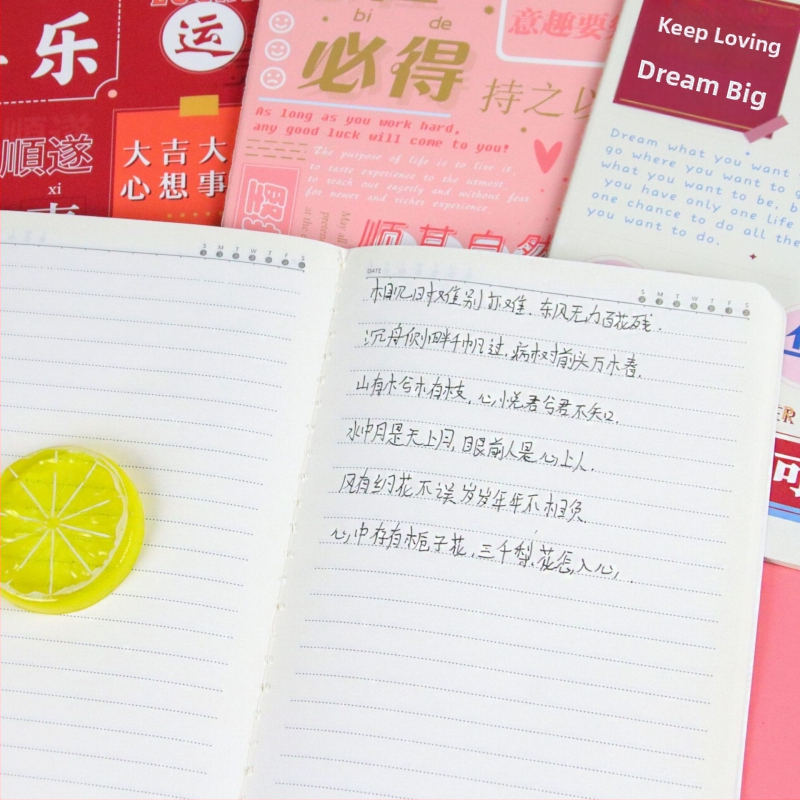 乐
运
順遂
xi
大吉大
心想事
bi de
必得
意趣要
持之以
As long as you work hard,
any good luck will come to you!
The purpose of life is to live it,
to taste experience to the utmost,
to reach out eagerly and without fear
for newer and richer experience.
顺其自然
Keep Loving
Dream Big
Dream what you want
go where you want to g
what you want to be, b
you have only one life
one chance to do all the
you want to do.
S M T W T F S
DATE
S M T W T F S
相见时难别亦难.东风无力百花残.
沉舟侧畔千帆过,病树前头万木春.
山有木兮木有枝,心悦君兮君不知.
水中月是天上月,眼前人是心上人.
风有约花不误岁岁年年不相负
心中存有栀子花,三千梨花怎入心...
ER
可